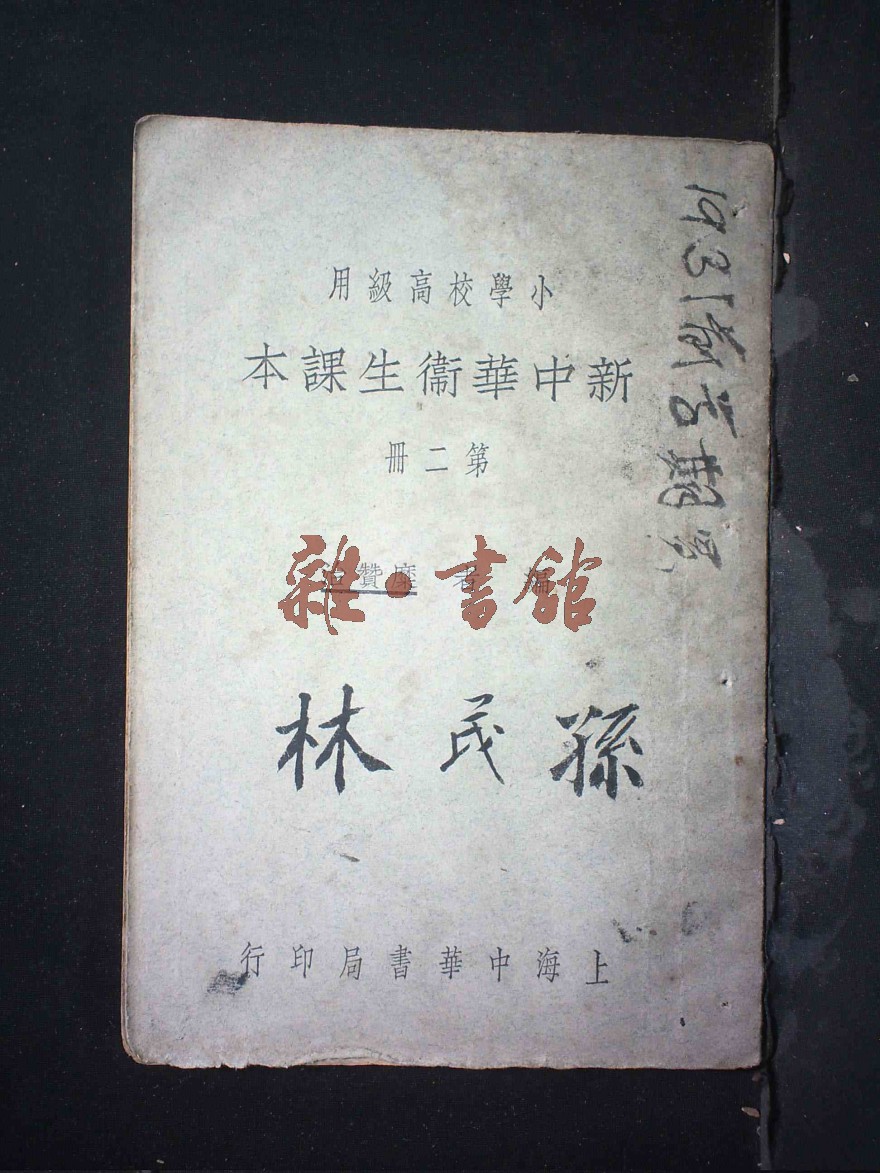 小學校高級用
新中華衞生課本
第二冊
編者 糜贊治
雜·書館
孫民林
上海中華書局印行
1931